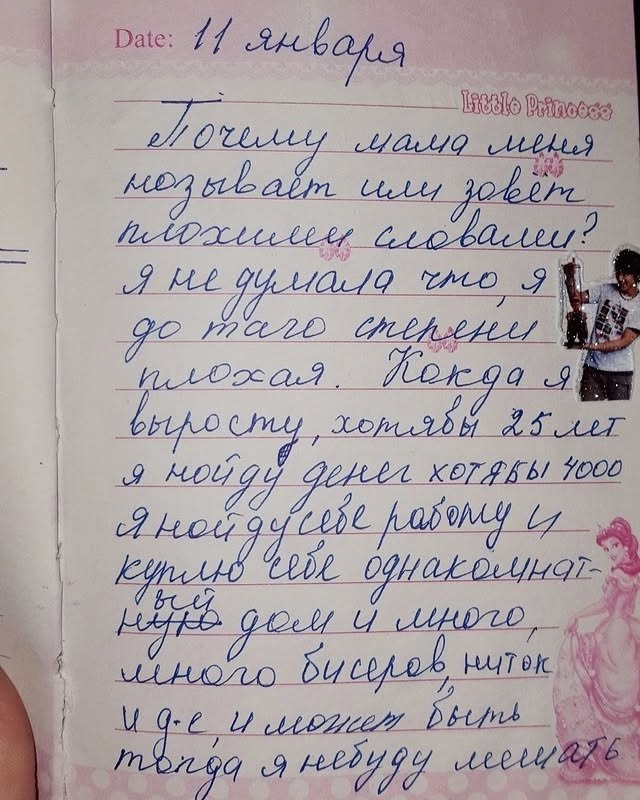 Date: 11 января
Little Princess
Почему мама меня
називает или зовёт
плохими словами?
я не думала что, я
до таго степени
плохая. Кокда я
выросту, хотябы 25 лет
я нойду денег хотябы 4000
я нойду себе работу и
куплю себе однакомнат-
ный
ную дом и много,
много бисеров, ниток
и д-е, и может быть
топда я небуду мешать